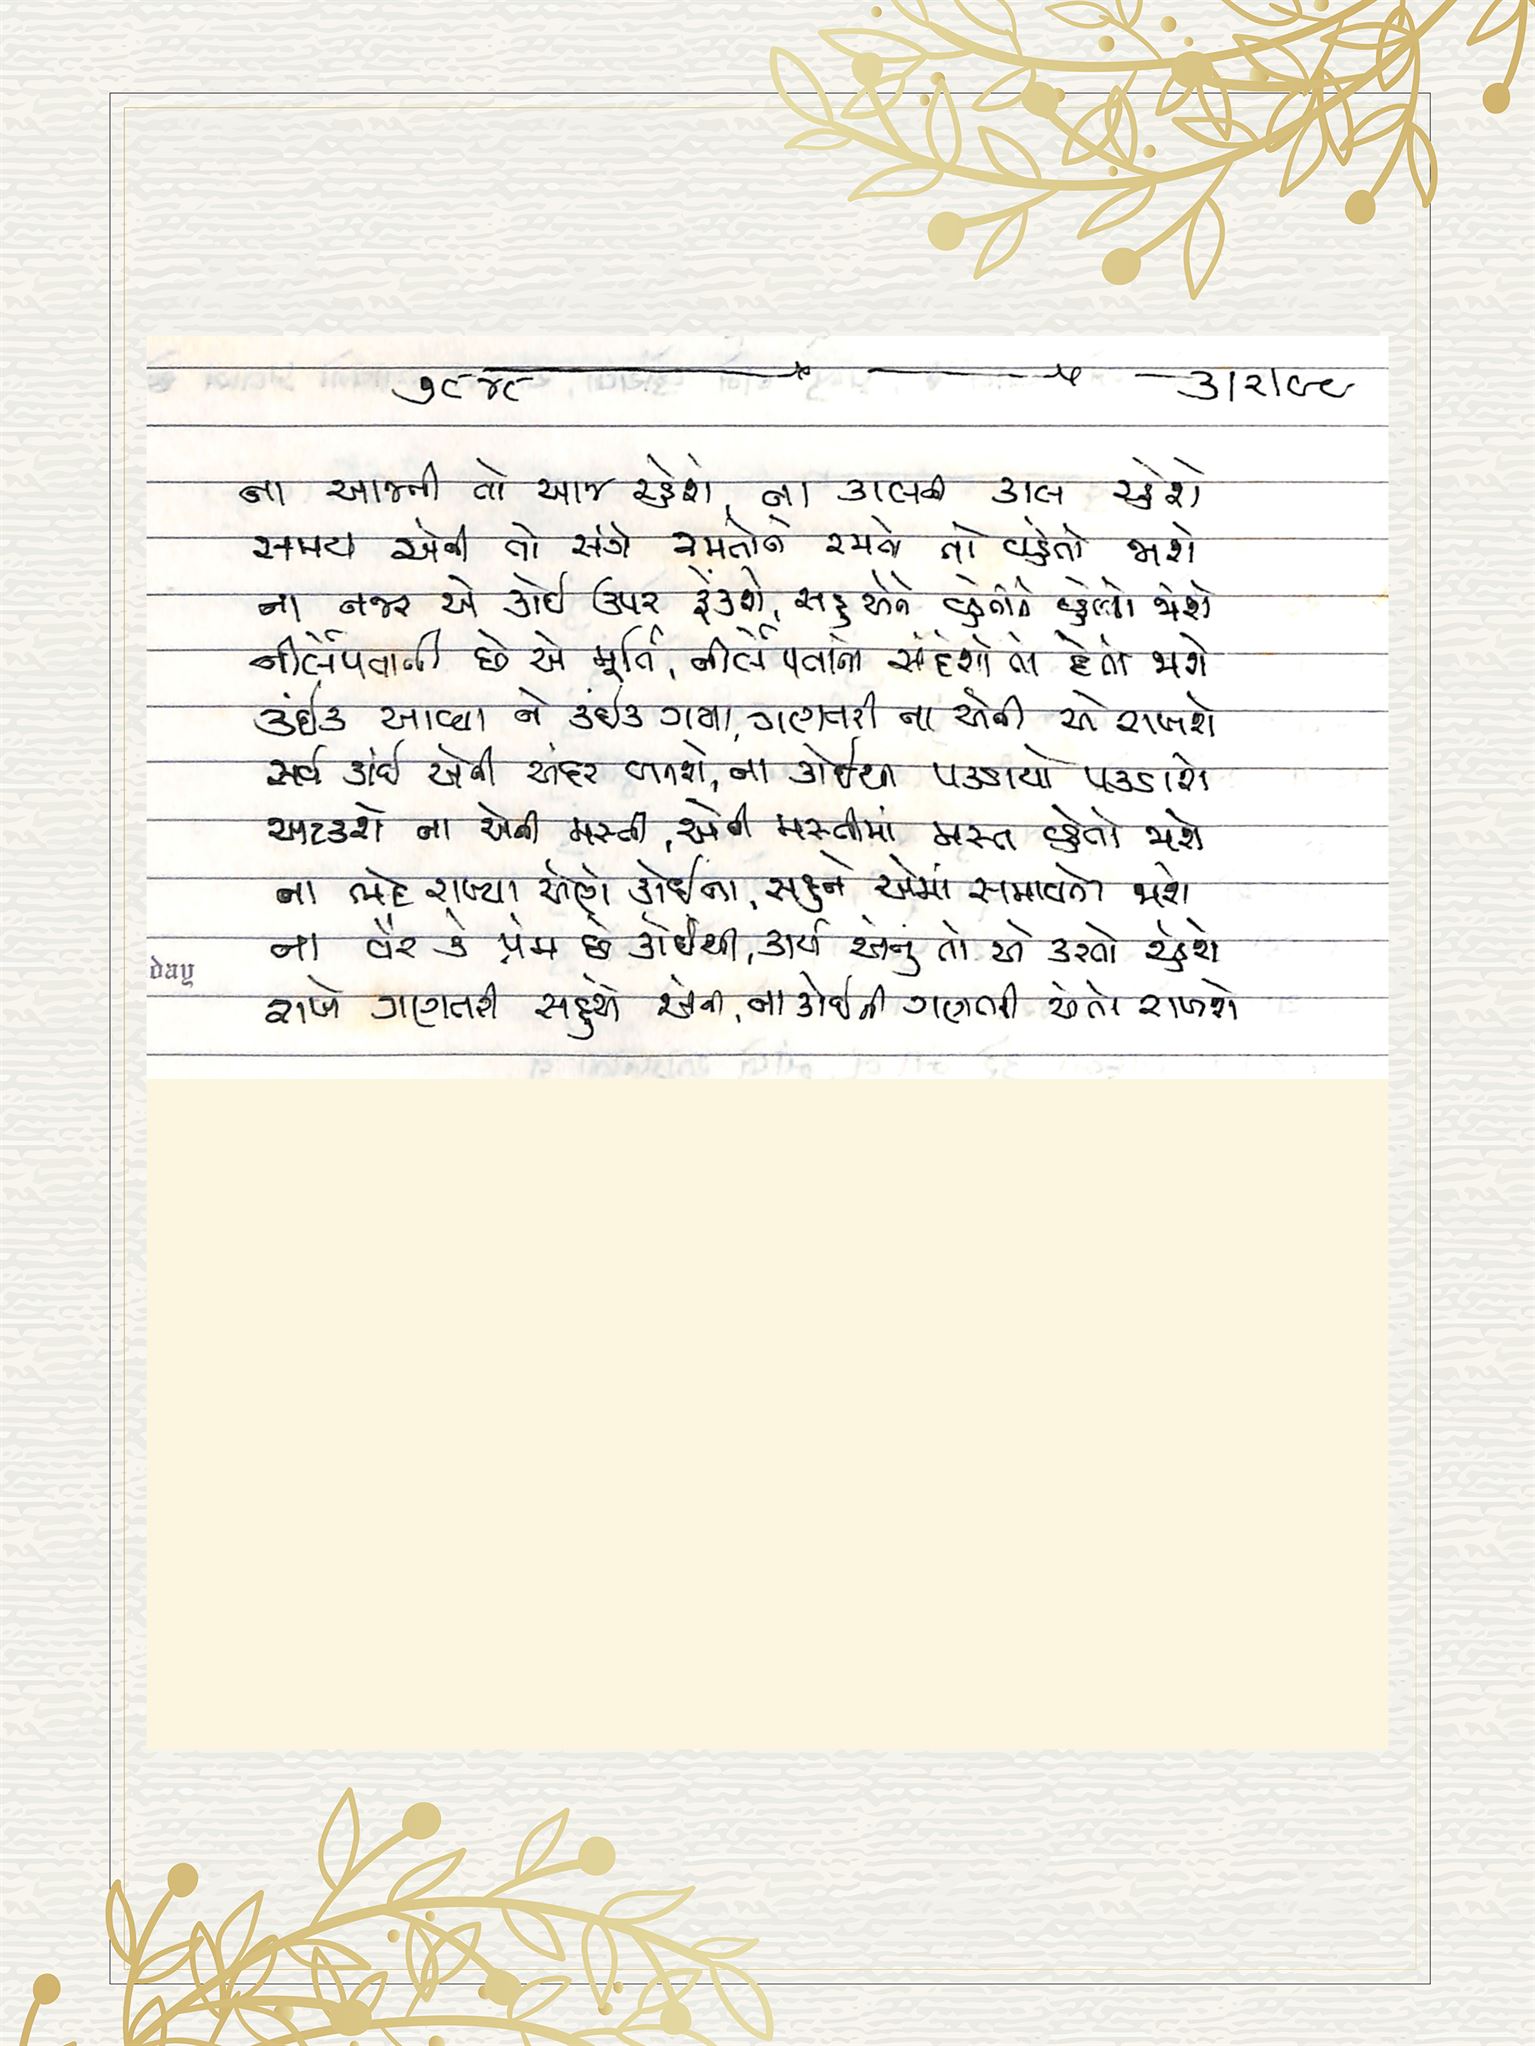 ૭૯૪૯ ૩/૨/૯૯
ના આજની તો આજ રહેશે, ના કાલની કાલ રહેશે
સમય એની તો સંગે રમતોને રમતો તો વહેતો જાશે
ના નજર એ કોઈ ઉપર ફેંકશે, સહુ એને વ્હેતોને વ્હેતો જોશે
નીર્લેપતાની છે એ મૂર્તિ, નીર્લેપતાનો સંદેશો તો દેતો જાશે
કંઈક આવ્યા ને કંઈક ગયા, ગણતરી ના એની એ રાખશે
સર્વ કાંઈ એની અંદર બનશે, ના કોઈથી પકડાયો પકડાશે
અટકશે ના એની મસ્તી, એની મસ્તીમાં મસ્ત વ્હેતો જાશે
ના ભેદ રાખ્યા એણે કોઈના, સહુને એમાં સમાવતો જાશે
ના વૈર કે પ્રેમ છે કોઈથી, કાર્ય એનું તો એ કરતો રહેશે
રાખે ગણતરી સહુએ એની, ના કોઈની ગણતરી એ તો રાખશે
day